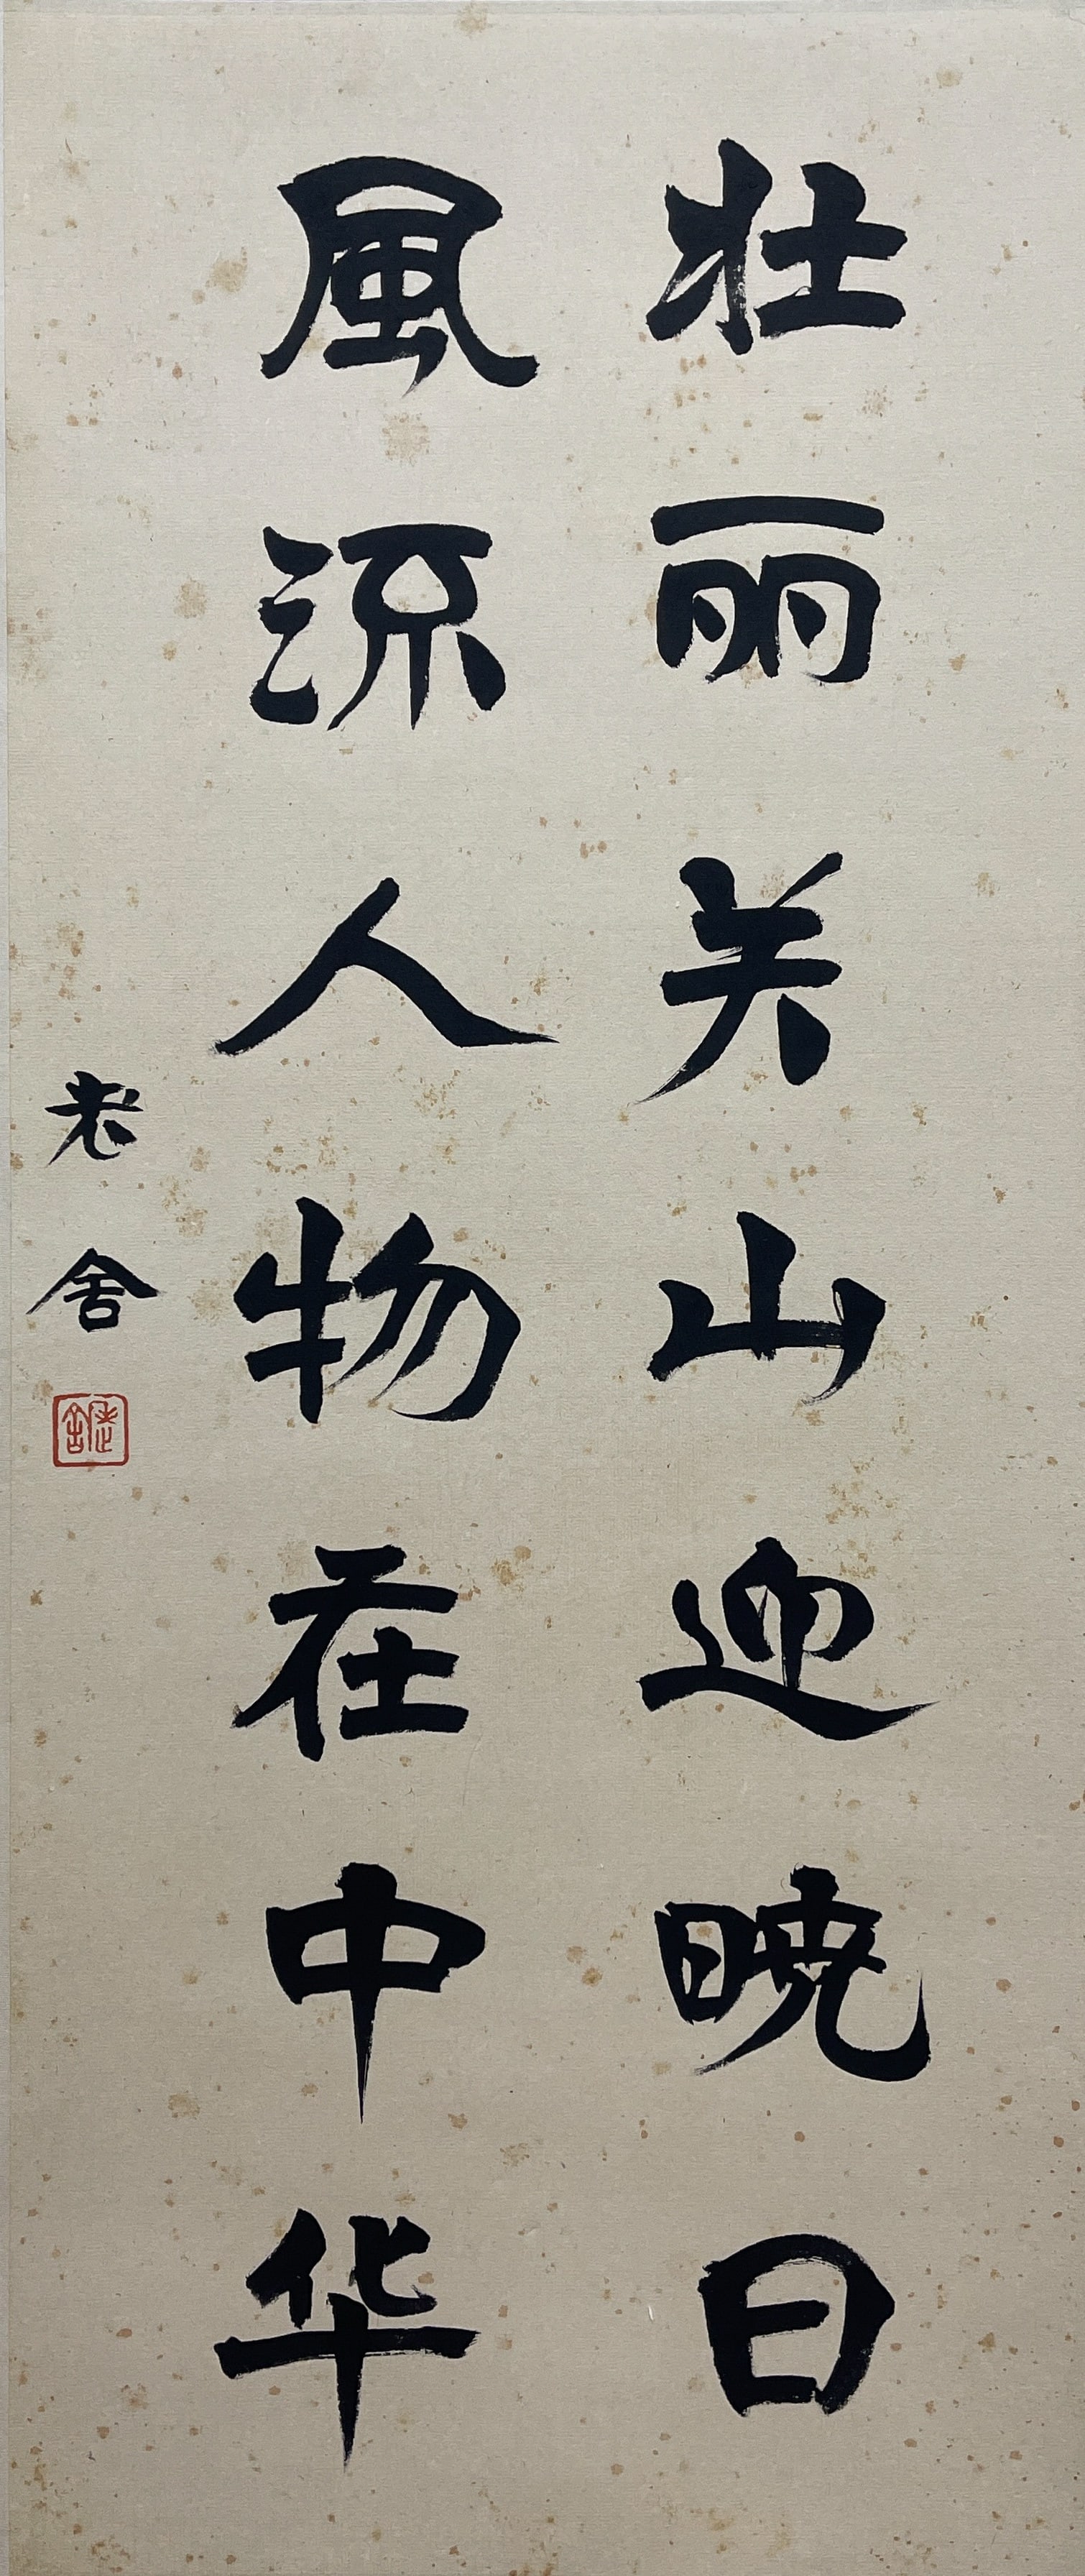 壮丽关山迎晓日
風流人物在中华
老舍
老舍